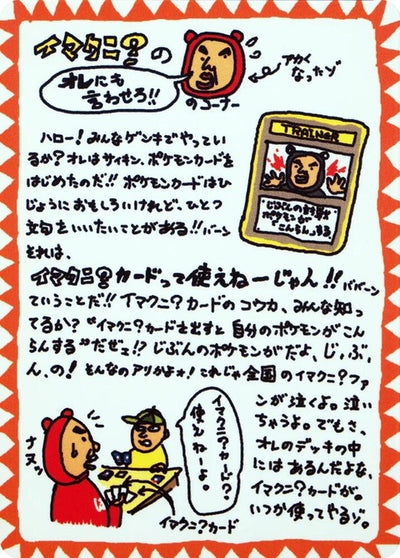 イマクニ?の
オレにも
言わせろ!!
のコーナー
アカく
なったゾ
ハロー!みんなゲンキでやってい
るか?オレはサイキン、ポケモンカードを
はじめたのだ!!ポケモンカードはひ
じょうにおもしろいけれど、ひとつ
文句をいいたいことがある!!バーン
それは、
TRAINER
じぶんの分身
ポケモンが
"こんらん"する
イマクニ?カードって使えねーじゃん!!ババーン
ていうことだ!!イマクニ?カードのコウカ、みんな知っ
てるか?"イマクニ?カードを出すと自分のポケモンがこん
らんする"だぜェ!?じぶんのポケモンがだよ、じ,ぶ,
ん,の!そんなのアリかよォ!これじゃ全国のイマクニ?ファ
ンが泣くよ。泣い
ちゃうよ。でもさ、
オレのデッキの中
にはあるんだよな、
イマクニ?カードが。
いつか使ってやるゾ。
イマクニ?カード?
使えねーよ。
ナヌッ
イマクニ?カード